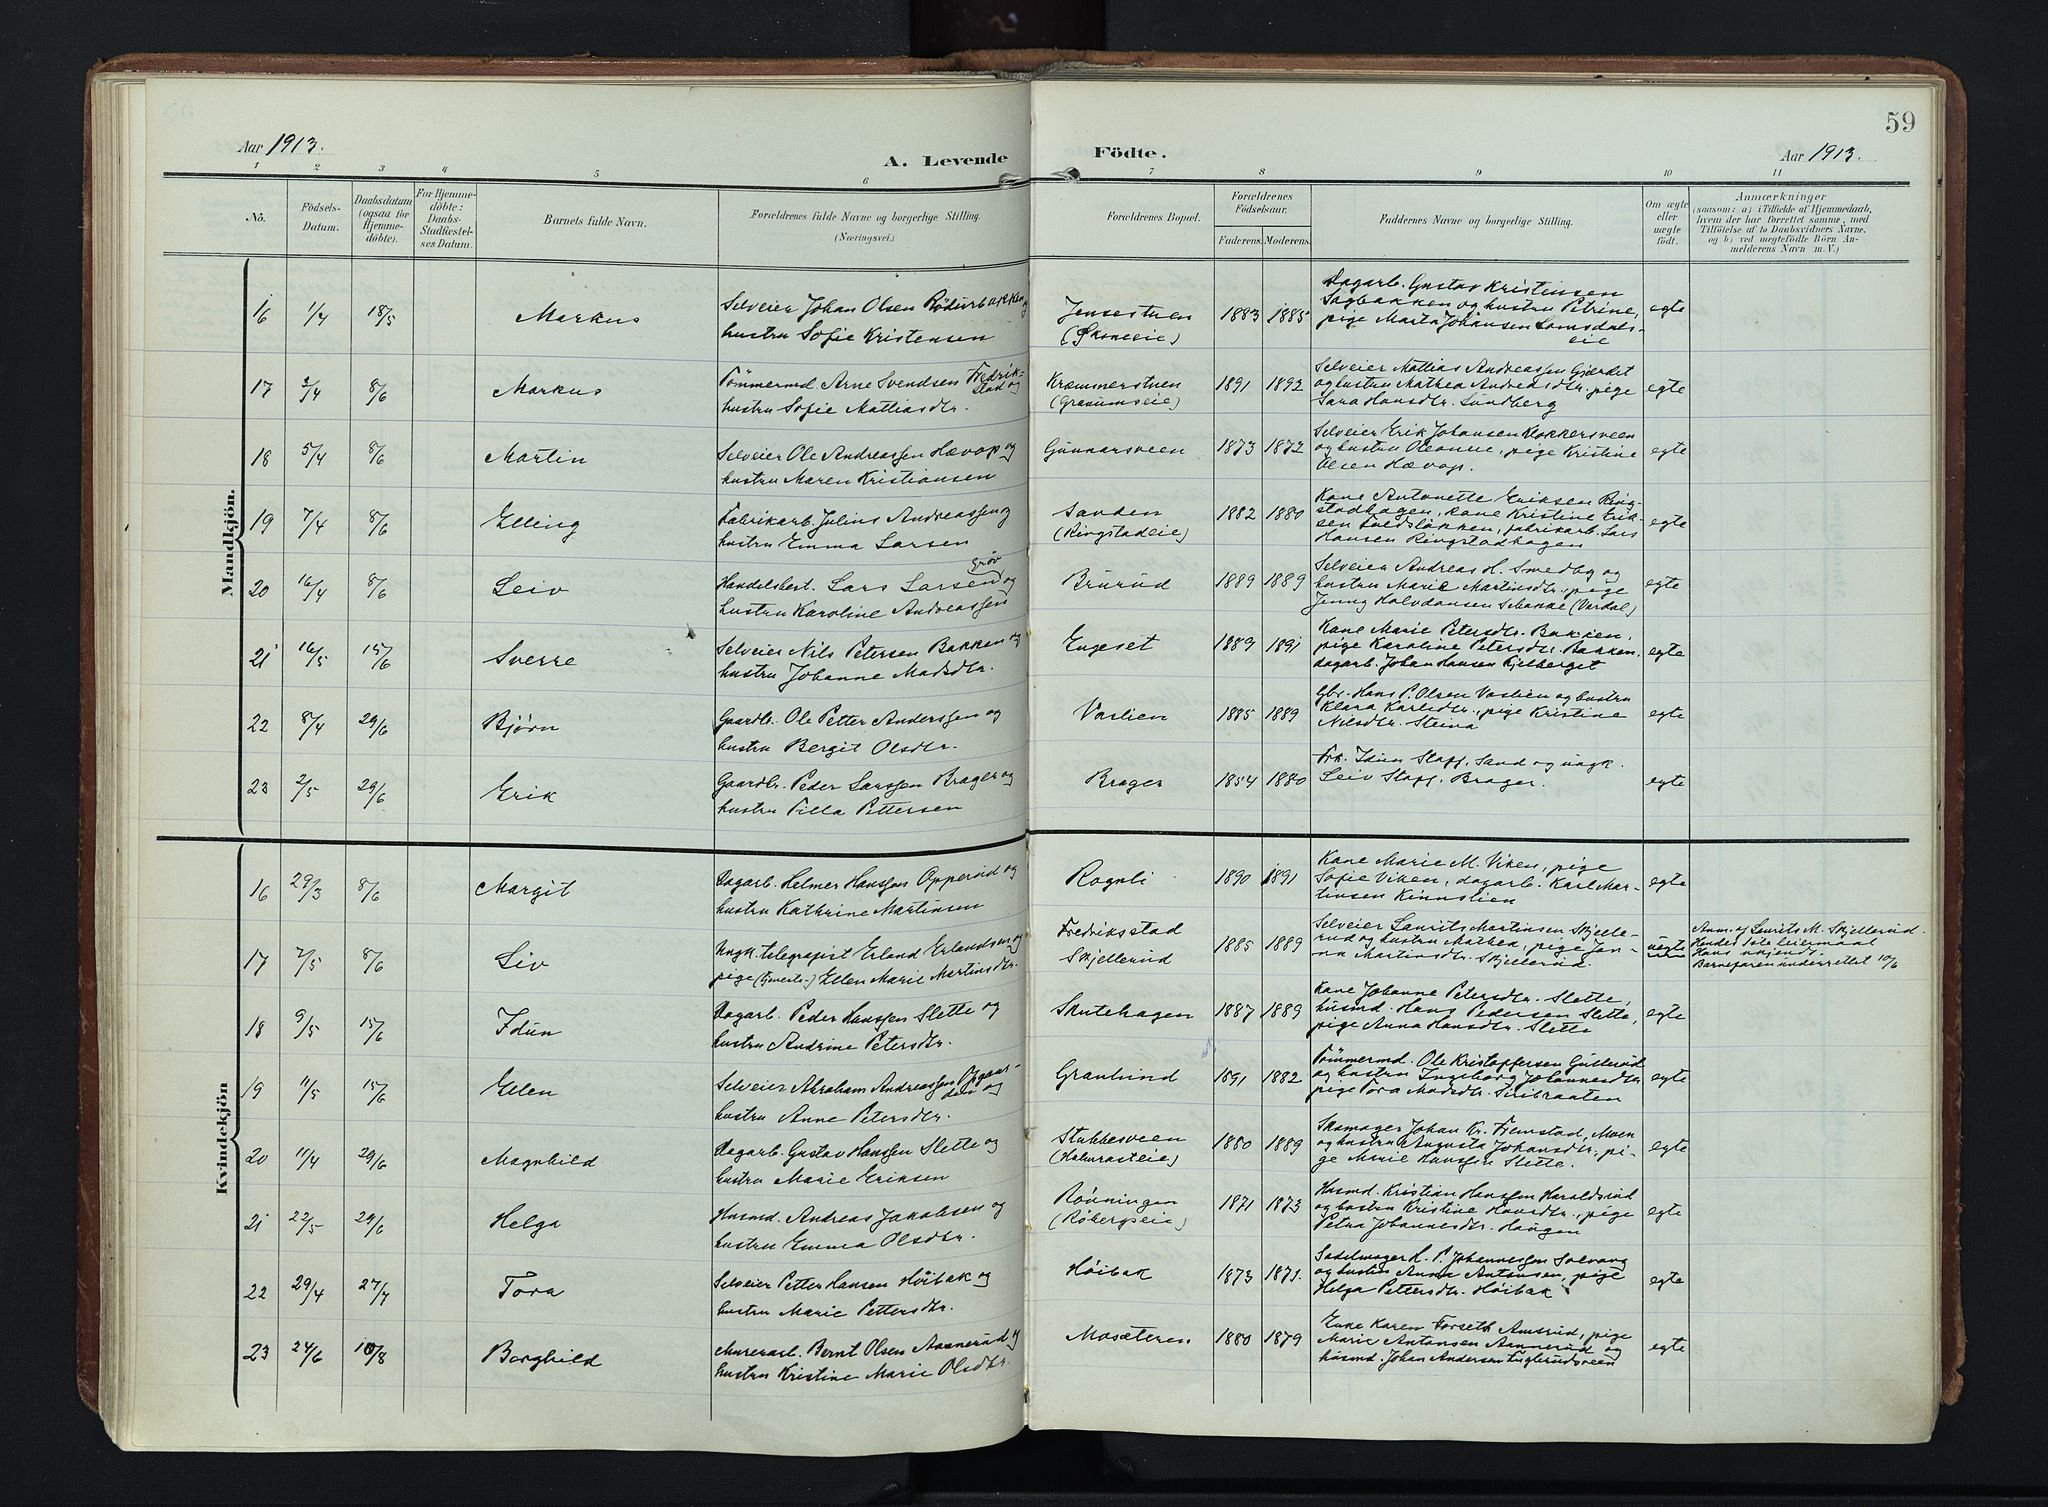 59
Aar 1913.
A. Levende
Födte.
Aar 1913.
1 2 3 4 5 6 7 8 9 10 11
Nô.
Födsels-
Datum.
Daabsdatum
(ogsaa for
Hjemme-
döbte).
For Hjemme-
döbte:
Daabs-
Stadfæstel-
ses Datum.
Barnets fulde Navn.
Forældrenes fulde Navne og borgerlige Stilling.
(Næringsvei.)
Forældrenes Bopæl.
Forældrenes
Födselsaar.
Faderens. Moderens.
Faddernes Navne og borgerlige Stilling.
Om ægte
eller
uægte
födt.
Anmærkninger
(saasom: a) i Tilfælde af Hjemmedaab,
hvem der har forrettet samme, med
Tilföielse af to Daabsvidners Navne,
og b) ved uægtefödte Börn An-
melderens Navn m. V.)
Mandkjön.
16 1/4 18/5 Markus
Selveier Johan Olsen Rödurbakken og
hustru Sofie Kristensen
Jensestuen
1883 1885
Dagarb. Gustav Kristinsen
Sagbakken og hustru Petrine,
pige Marta Johansen Lomsdals-
eie
egte
17 3/4 8/6 Markus
Tömmermd. Arne Svendsen Fredrik-
stad og
hustru Sofie Mattiasdtr.
Kræmmerstuen
(Graumseie)
1891 1892
Selveier Mattias Andreassen Gjerdet
og hustru Mathea Andreasdtr. pige
Sara Hansdtr. Lundberg
egte
18 5/4 8/6 Martin
Selveier Ole Andreassen Hævop og
hustru Maren Kristiansen
Gunnarsveen
1873 1872
Selveier Erik Johansen Klokkersveen
og hustru Oleanne, pige Kristine
Olsen Hævop.
egte
19 7/4 8/6 Elling
Fabrikarb. Julius Andreassen og
hustru Emma Larsen
Sanden
(Ringstadeie)
1882 1880
Kone Antonette Eriksen Ring-
stadhagen, kone Kristine Erik-
sen, fabrikarb. Lars
Hansen Ringstadhagen
egte
20 16/4 8/6 Leiv
Handelsbest. Lars Larsen Gröv og
hustru Karoline Andreassen
Brurud
1889 1889
Selveier Andreas H. Smedby og
hustru Marie Martinsdtr., pige
Jenny Halvdansen (Vardal)
egte
21 16/5 15/6 Sverre
Selveier Nils Petersen Bakken og
hustru Johanne Madsdtr.
Engeset
1889 1891
Kone Marie Petersdtr. Bakken,
pige Karoline Petersdtr. Bakken,
dagarb. Johan Hansen Kjelberget
egte
22 8/4 29/6 Björn
Gaardbr. Ole Petter Anderssen og
hustru Bergit Olsdtr.
Vaslien
1885 1889
Gbr. Hans P. Olsen Vaslien og hustru
Klara Karlsdtr., pige Kristine
Nilsdtr. Steina
egte
23 2/5 29/6 Erik
Gaardbr. Peder Larssen Brager og
hustru Tilla Pettersen
Brager
1854 1880
Frk. Idun Staff, Sand og ungk.
Leiv Staff, Brager.
egte
Kvindekjön
16 29/3 8/6 Margit
Dagarb. Helmer Hanssen Opperud og
hustru Kathrine Martinsen
Rognli
1890 1891
Kone Marie M. Viken, pige
Sofie Viken, dagarb. Karl Mar-
tinsen Kinnslien
egte
17 7/5 8/6 Liv
Ungk. telegrafist Erland Erlandsen og
pige Ellen Marie Martinsdtr.
Fredriksstad
Skjellerud
1885 1889
Selveier Laurits Martinsen Skjelle-
rud og hustru Mathea, pige Jan-
na Martinsdtr. Skjellerud.
uegte
Anm. af Laurits M. Skjellerud.
Hendes 1ste leiermaal
Hans ukjendt.
Barnefaren underrettet 10/6
18 9/5 15/6 Idun
Dagarb. Peder Hanssen Slette og
hustru Andrine Petersdtr.
Skutehagen
1887 1889
Kone Johanne Petersdtr. Slette,
husmd. Hans Pedersen Slette,
pige Anna Hansdtr. Slette
egte
19 11/5 15/6 Ellen
Selveier Abraham Andreassen Opgaar-
den og
hustru Anne Petersdtr.
Granlund
1891 1882
Tömmermd. Ole Kristoffersen Gullerud
og hustru Ingeborg Johannesdtr
pige Tora Madsdtr. Siribraaten
egte
20 11/4 29/6 Magnhild
Dagarb. Gustav Hanssen Slette og
hustru Marie Eriksen
Stubbesveen
1880 1889
Skomager Johan Kr. Fremstad, Moen
og hustru Augusta Johansdtr., pi-
ge Marie Hanssen Slette.
egte
21 22/5 29/6 Helga
Husmd. Andreas Jakobsen og
hustru Emma Olsdtr.
Rönningen
(Röbergseie)
1871 1873
Husmd. Kristian Hanssen Haraldsrud
og hustru Kristine Hansdtr., pige
Petra Johannesdtr. Haugen
egte
22 29/4 27/7 Tora
Selveier Petter Hansen Höibak og
hustru Marie Pettersdtr.
Höibak
1873 1871.
Sadelmager H. P. Johannessen Solvang
og hustru Anna Antonsen, pige
Helga Pettersdtr. Höibak
egte
23 24/6 10/8 Borghild
Murerarb. Bernt Olsen Aannerud og
hustru Kristine Marie Olsdtr.
Mosæteren
1880 1879
Enke Karen Forseth Amdrud, pige
Marie Antonsen Aannerud og
husmd. Johan Andersen Fuglerudsveen
egte